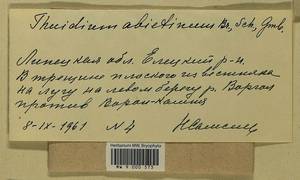 Thuidium abietinum Br., Sch., Gmb.
Липецкая обл. Елецкий р-н.
В трещине плоского известняка
на лугу на левом берегу р. Воргол
против Ворон-камня
8-IX-1961 N 4
Herbarium MW, Bryophyta
MW 9 000 573